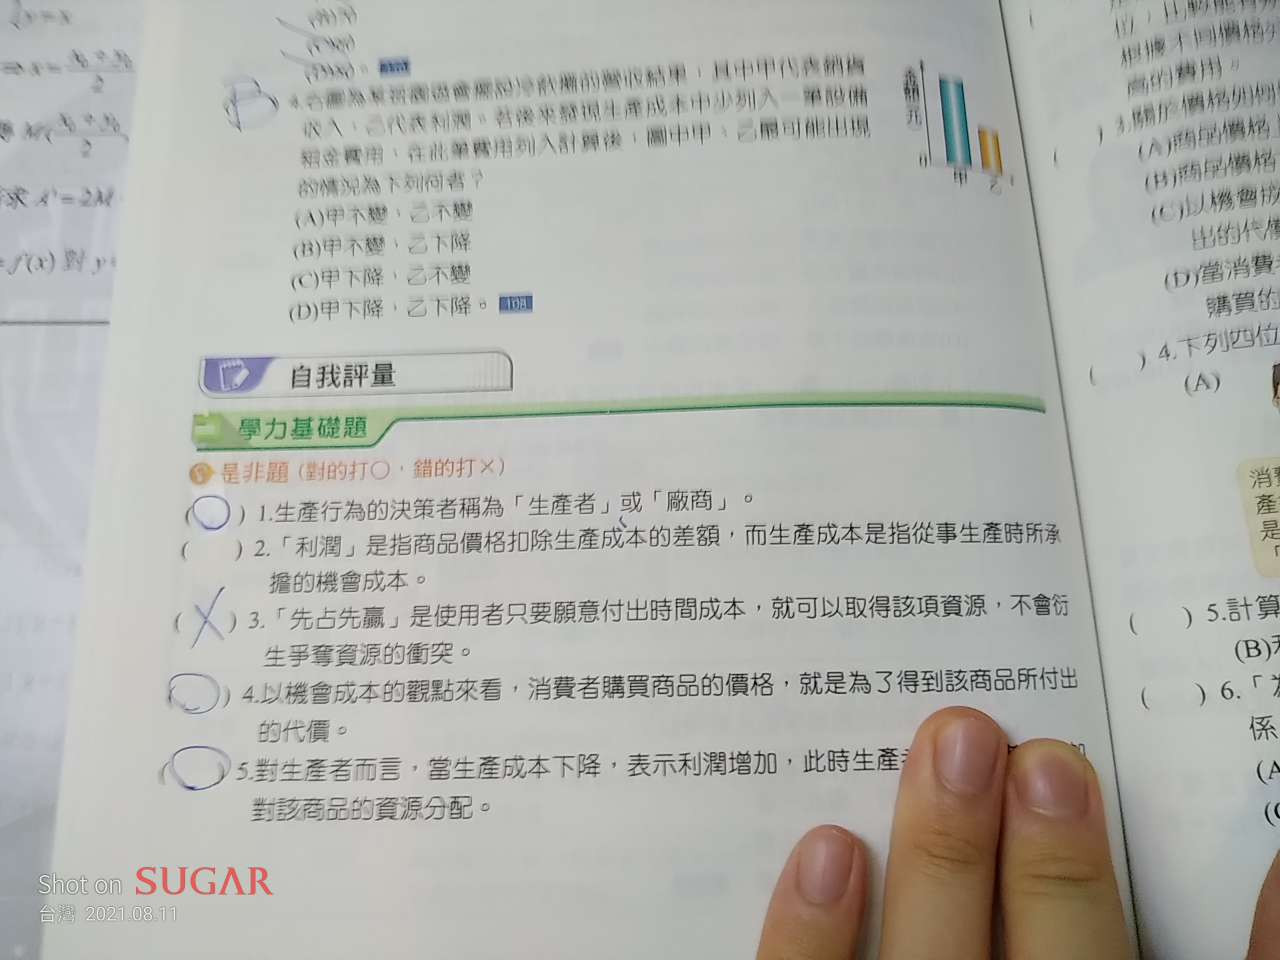 B
4.右圖為某校園遊會擺設冷飲攤的營收結果,其中甲代表銷貨
收入,乙代表利潤。若後來發現生產成本中少列入一筆設備
租金費用,在此筆費用列入計算後,圖中甲、乙最可能出現
的情況為下列何者?
(A)甲不變,乙不變
(B)甲不變,乙下降
(C)甲下降,乙不變
(D)甲下降,乙下降。
金額(元)
0
甲
乙
自我評量
學力基礎題
是非題(對的打○,錯的打×)
(○)1.生產行為的決策者稱為「生產者」或「廠商」。
( )2.「利潤」是指商品價格扣除生產成本的差額,而生產成本是指從事生產時所承
擔的機會成本。
(X)3.「先占先贏」是使用者只要願意付出時間成本,就可以取得該項資源,不會衍
生爭奪資源的衝突。
(○)4.以機會成本的觀點來看,消費者購買商品的價格,就是為了得到該商品所付出
的代價。
(○)5.對生產者而言,當生產成本下降,表示利潤增加,此時生產
對該商品的資源分配。
根據不同價格
高的費用。
( )3.關於價格如何
(A)商品價格
(B)商品價格
(C)以機會成
出的代價
(D)當消費者
購買的
( )4.下列四位
(A)
消費
產
是
( )5.計算
(B)利
( )6.「為
係
(A
(C
x'=2M
=f(x)對y=
Shot on SUGAR
台灣 2021.08.11